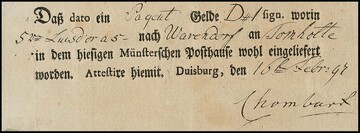 Daß dato ein Paquet Gelde D41 sign. worin
5 Luisdor a 5 - nach Warendorf an
in dem hiesigen Münsterschen Posthause wohl eingeliefert
worden. Attestire hiemit. Duisburg, den 16ten Febr: 97